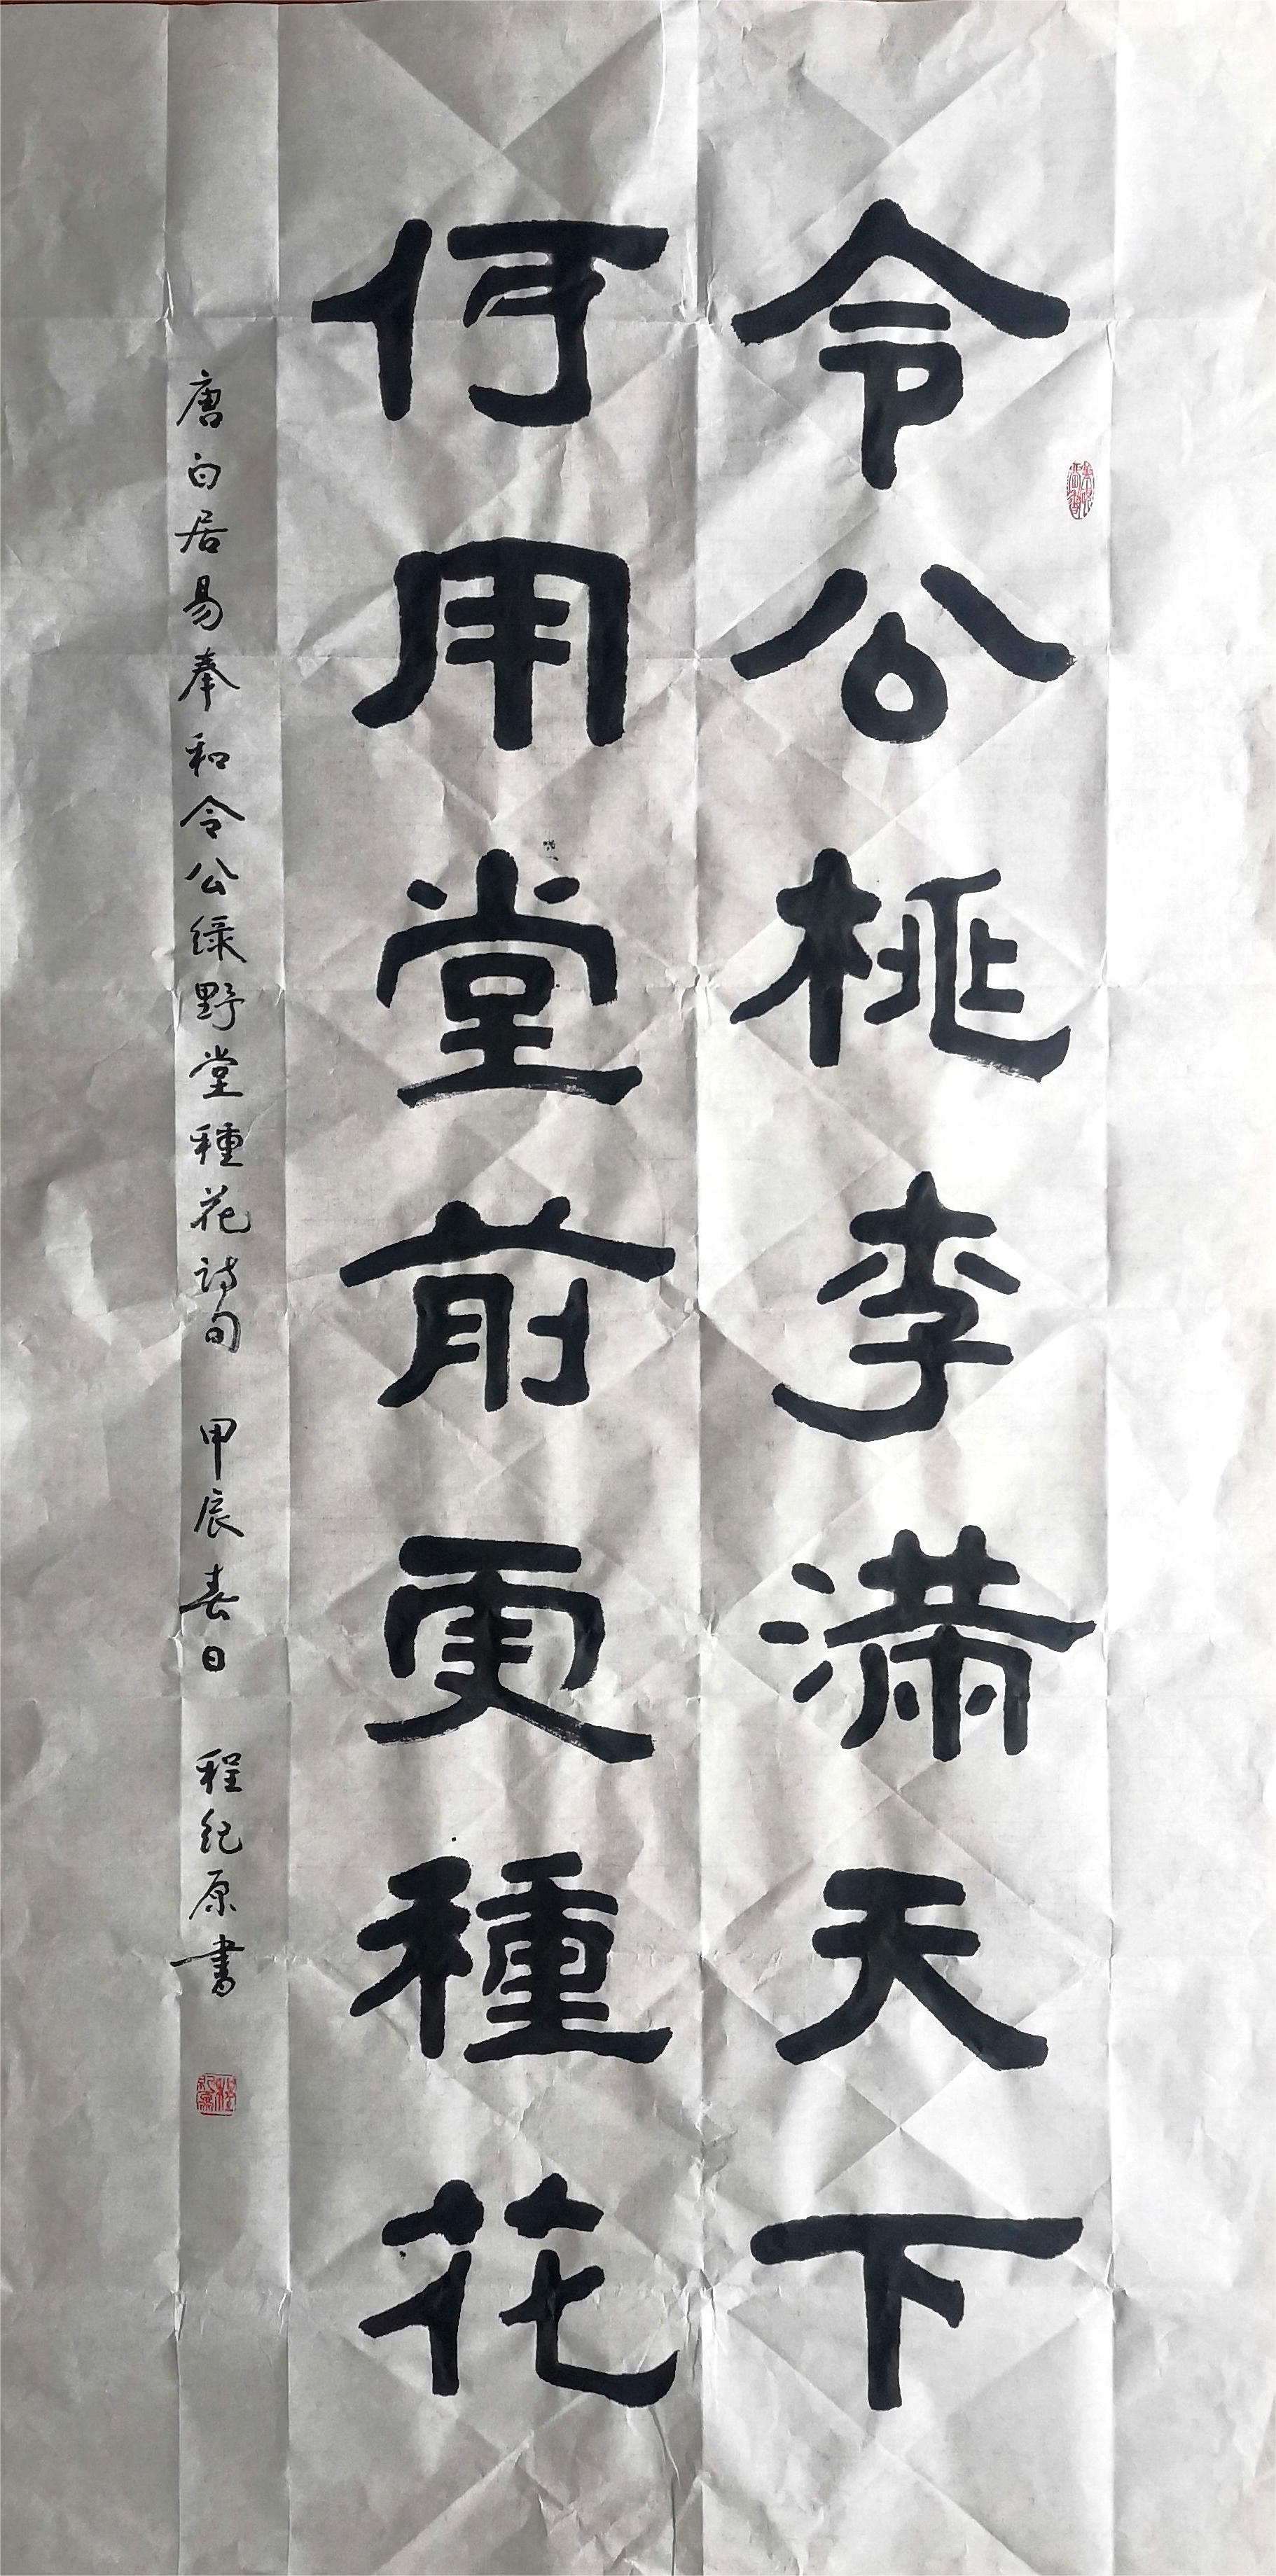 令公桃李滿天下
何用堂前更種花
唐白居易奉和令公緑野堂種花詩句 甲辰春日 程紀原書